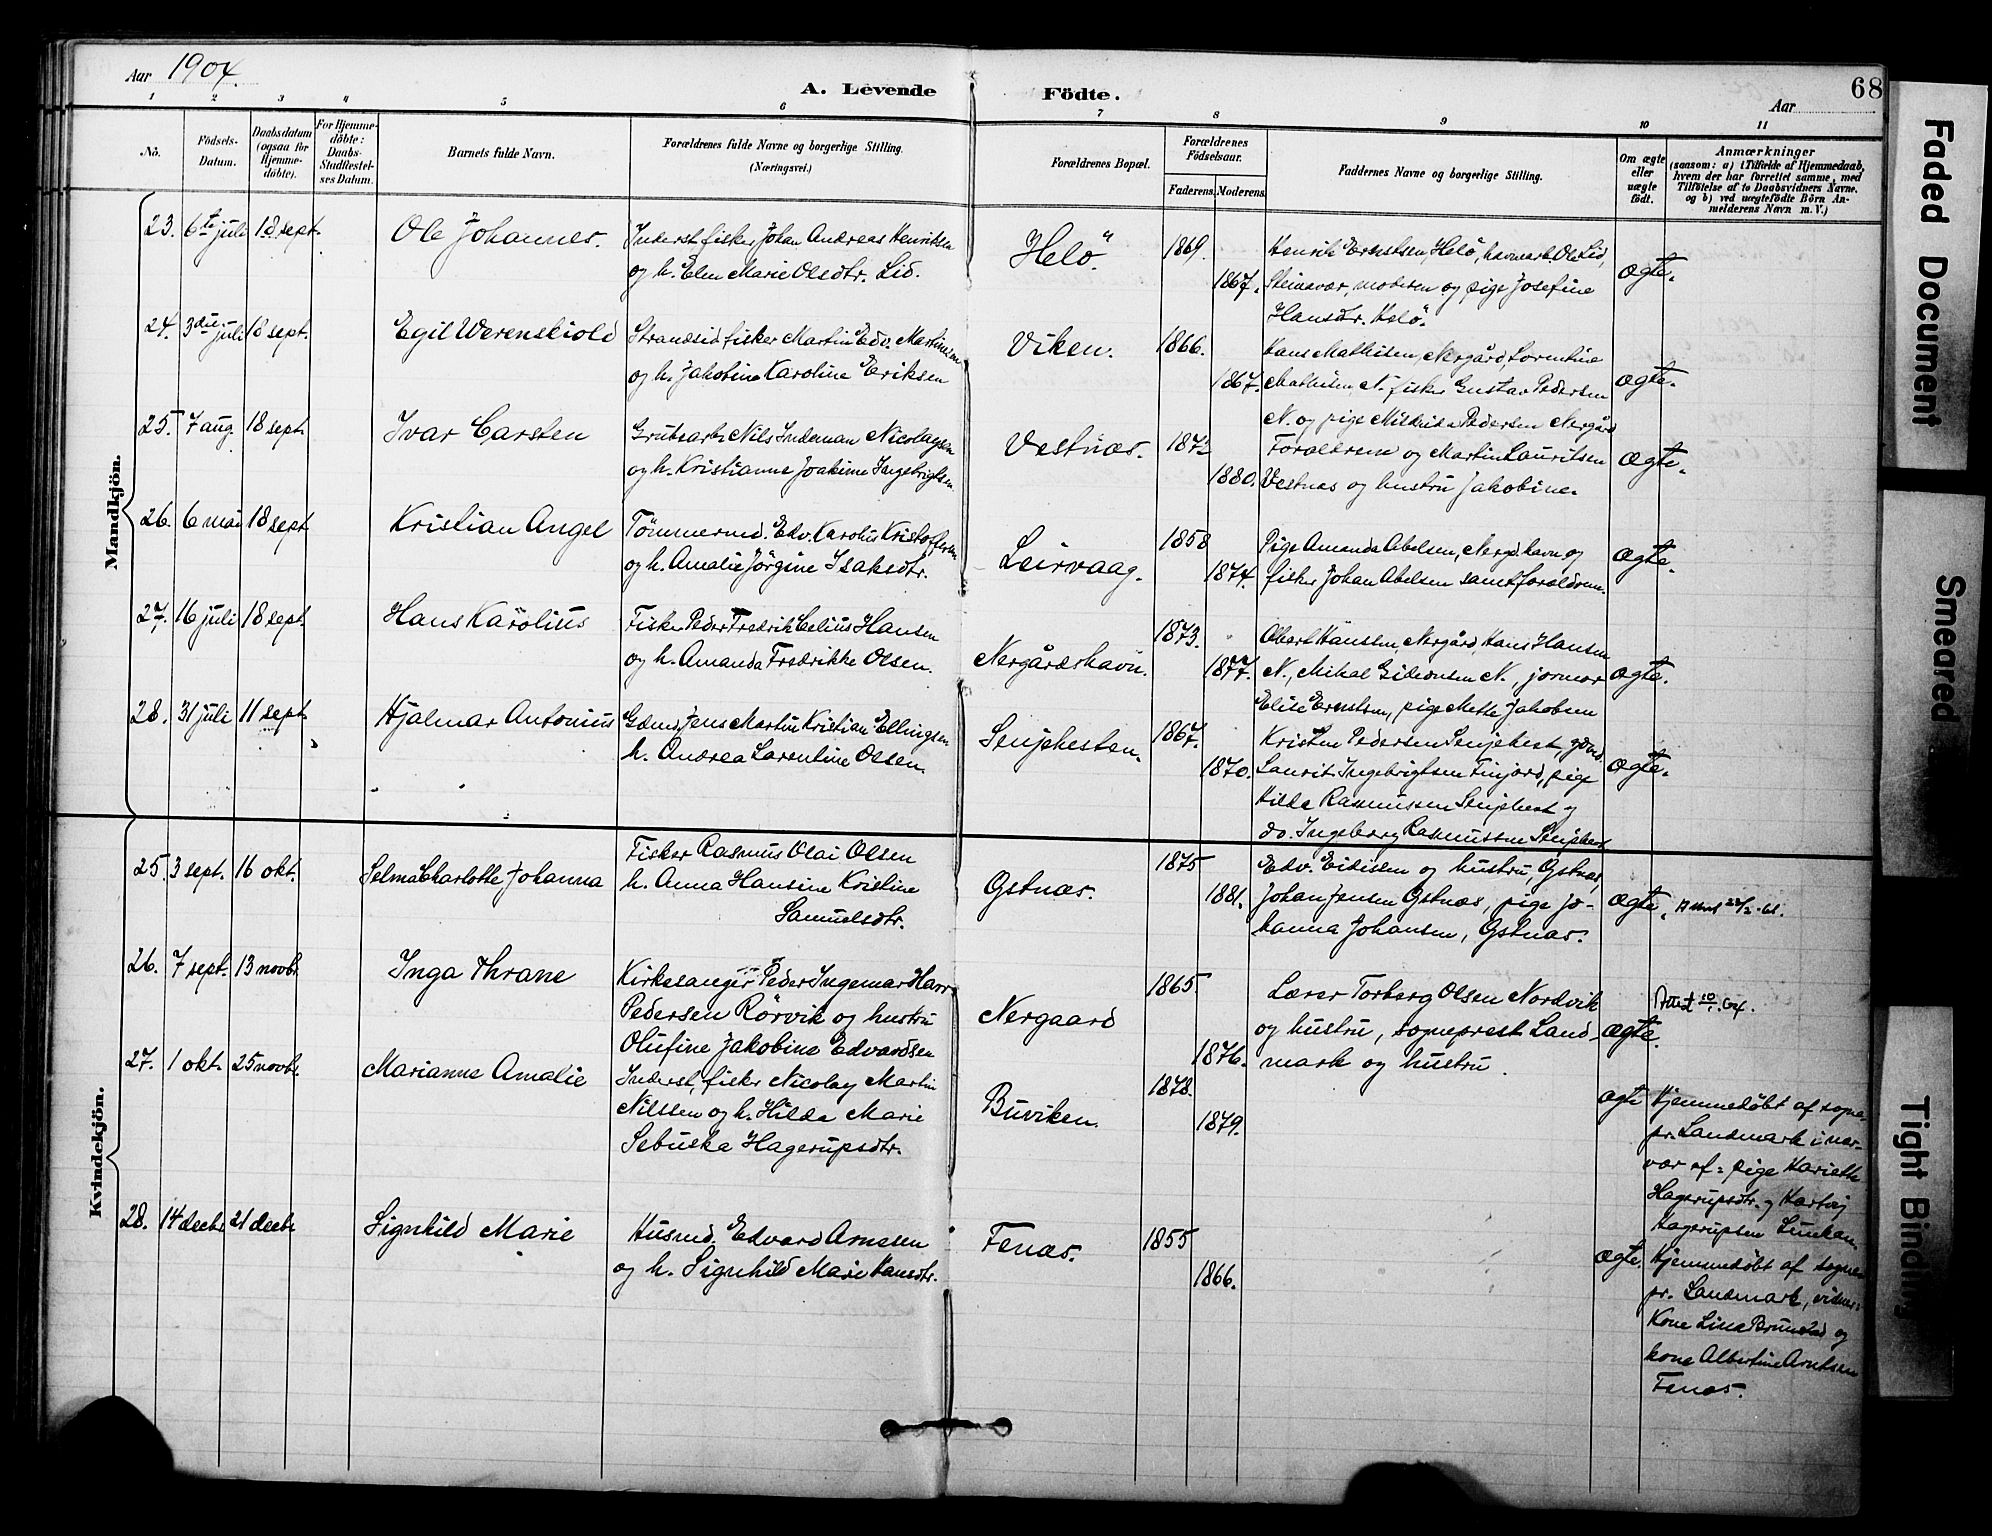 Aar 1904.
A. Levende Födte.
Aar
68
1 2 3 4 5 6 7 8 9 10 11
No.
Födsels-Datum.
Daabsdatum (ogsaa for Hjemmedöbte).
For Hjemmedöbte: Daabs-Stadfæstelses Datum.
Barnets fulde Navn.
Forældrenes fulde Navne og borgerlige Stilling.
(Næringsvei.)
Forældrenes Bopæl.
Forældrenes Födselsaar.
Faderens. Moderens.
Faddernes Navne og borgerlige Stilling.
Om ægte eller uægte födt.
Anmærkninger
(saasom: a) i Tilfælde af Hjemmedaab, hvem der har forrettet samme, med Tilföielse af to Daabsvidners Navne, og b) ved uægtefödte Börn Anmelderens Navn m. V.)
Mandkjön.
23. 6te juli 18 sept. Ole Johannes. Inderst fisker Johan Andreas Henriksen
og h. Elen Marie Olsdtr. Lid.
Helö. 1869. 1867.
Henrik Erentsen, Helö, havnarb. Ole Lid,
Steinavær, moderen og pige Josefine
Hansdtr. Helö.
ægte.
24. 3die juli 18 sept. Egil Werenskiold Strandsid. fisker Martin Edv. Martinsen
og h. Jakobine Karoline Eriksen
Viken. 1866. 1867.
Hans Mathisen, Nergård, Lorentine
Mathisen, N. fisker Gustav Pedersen
N. og pige Mildrida Pedersen Nergård
ægte.
25. 7 aug. 18 sept. Ivar Carsten Grubearb. Nils Indeman Nicolaysen
og h. Kristianne Joakime Ingebrigtsen.
Vestnæs. 1873 1880.
Forældrene og Martin Lauritsen
Vestnæs og hustru Jakobine.
ægte.
26. 6 mai 18 sept Kristian Angel Tömmermd. Edv. Karolius Kristoffersen
og h. Amalie Jörgine Isaksdtr.
Leirvaag. 1858 1874.
Pige Amanda Abelsen, Nergd.havn og
fisker Johan Abelsen samt forældrene.
ægte.
27. 16 juli 18 sept. Hans Karolius Fisker Peder Fredrik Celius Hansen
og h. Amanda Fredrikke Olsen.
Nergårdshavn. 1873. 1877.
Obert Hansen, Nergård, Hans Hansen
N., Mikal Gideonsen N., jormor
Elise Erentsen, pige Mette Jakobsen
ægte.
28. 31 juli 11 sept. Hjalmar Antonius Gdmd. Jens Martin Kristian Ellingsen
h. Andrea Larentine Olsen.
Senjehesten. 1867. 1870.
Kristen Pedersen Senjehest, gdmd.
Laurits Ingebrigtsen Finjord, pige
Hilda Rasmussen Senjehest og
do. Ingeborg Rasmussen Senjehest
ægte.
Kvindekjön.
25. 3 sept. 16 okt. Selma Charlotte Johanna Fisker Rasmus Olai Olsen
h. Anna Hansine Kristine
Samuelsdtr.
Gstnæs. 1875 1881.
Edv. Eidissen og hustru, Gstnæs,
Johan Jensen Gstnæs, pige Jo-
hanna Johansen, Gstnæs.
ægte.
26. 7 sept. 13 novbr. Inga Thrane Kirkesanger Peder Ingemar Harr
Pedersen Rörvik og hustru
Olufine Jakobine Edvardsen
Nergaard 1865. 1876.
Lærer Torberg Olsen Nordvik
og hustru, sogneprest Land-
mark og hustru.
ægte.
27. 1 okt. 25 novbr. Marianne Amalie Inderst, fisker Nicolay Martin
Nilssen og h. Hilda Marie
Sebuska Hagerupsdtr.
Buviken. 1878. 1879.
ægte Hjemmedöbt af sogne-
pr. Landmark i nær-
vær af: pige Hariette
Hagerupsdtr. og Hartvij
Hagerupsen
28. 14 decbr 21 decbr Signhild Marie Husmd. Edvard Arnesen
og h. Signhild Marie Hansdtr.
Fenæs. 1855 1866.
ægte. Hjemmedöbt af sogne-
pr. Landmark, vidner:
Kone Lina Brunstad og
kone Albertine Arntsen
Fenæs.
Faded Document
Smeared
Tight Binding